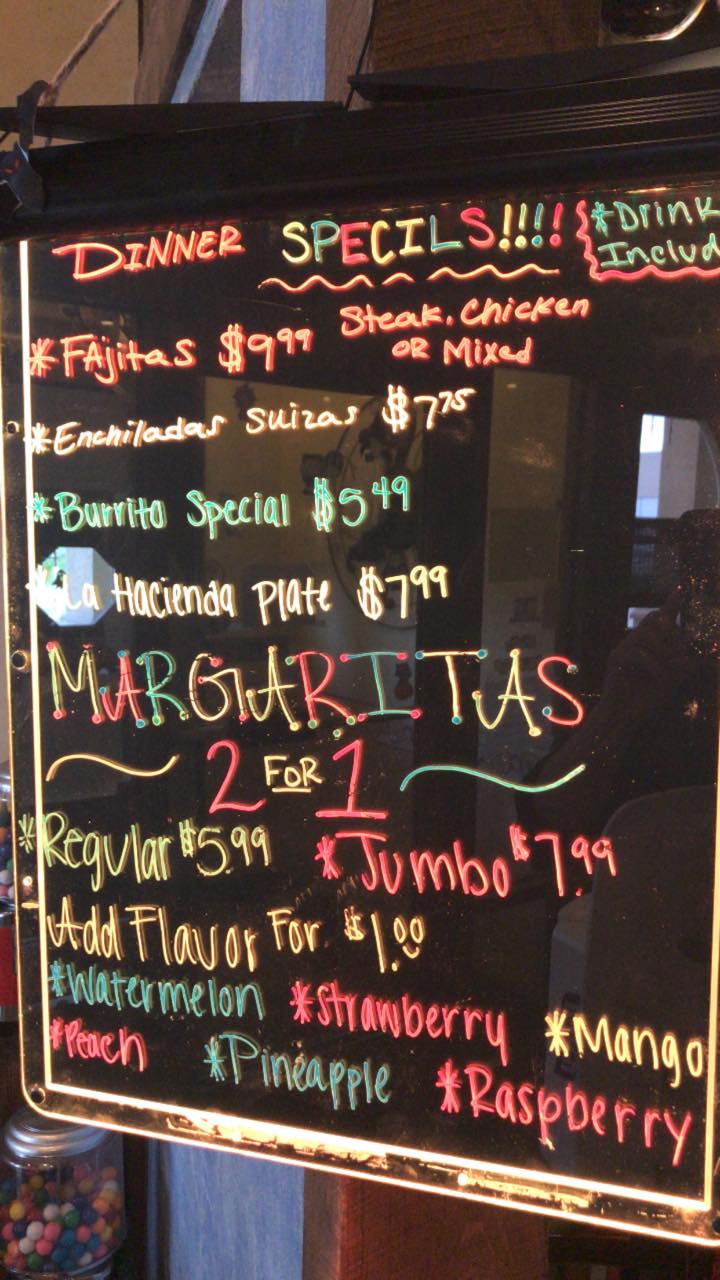 DINNER SPECILS!!!! *Drink
Includ
*FAjitas $9.99 Steak, Chicken
OR Mixed
*Enchiladas suizas $7.75
*Burrito Special $5.49
*La Hacienda plate $7.99
MARGARITAS
2 FOR 1
*Regular $5.99 *Jumbo $7.99
Add Flavor For $1.00
*Watermelon *Strawberry *Mango
*Peach *Pineapple *Raspberry